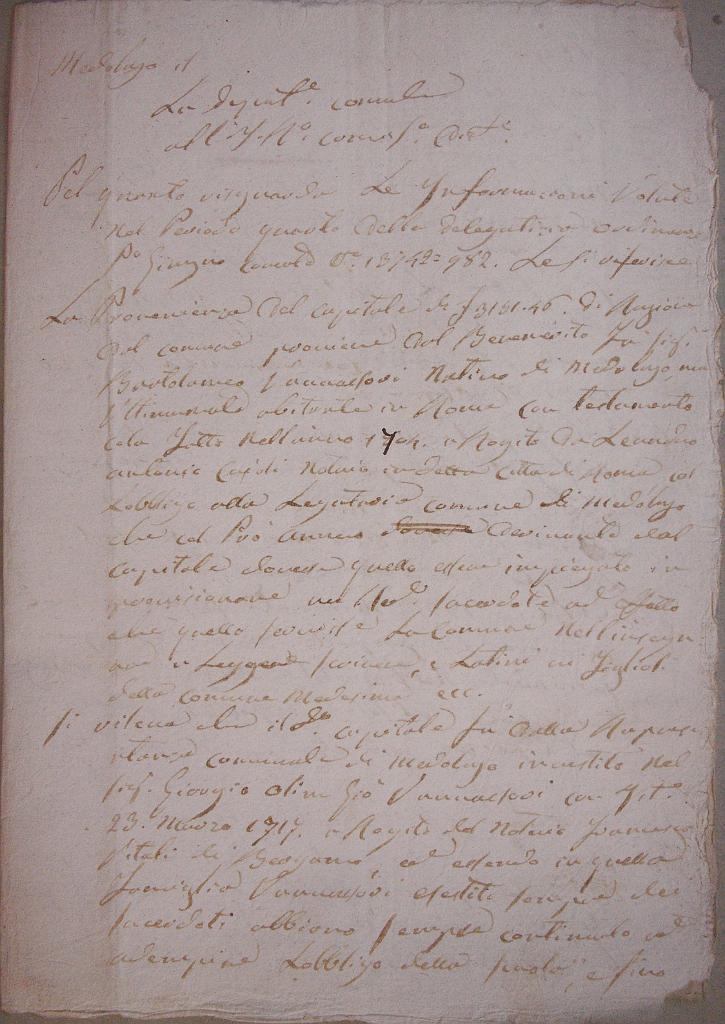 Medolago il
La Deput.e comule
all' I. R.o comess.o Dist.e
Pel quanto risguarda Le Informazioni Volute
nel Periodo quarto della delegatizia ordinanza
P.o Giugno N.o 13742=982. Le si riferisce
La Provenienza del capitale di £ 3131.46. di Ragione
del comune proviene dal Benemerito fu Sig.
Bartolomeo Vannassori Nativo di Medolago, ma
Ultimamente abitante in Roma con testamento
da Fatto nell'anno 1704. a Rogito Da Leandro
antonio Notaio in detta citta di Roma col
Lobbligo alla Legataria comune di Medolago
che col Pro annuo dovesse Derivante dal
capitale dovesse quello esser impiegato in
un Rev.do sacerdote ad effetto
che quello servisse La Comune nell'insegn
are a Leggere scrivere, e Latini ai Figlioli
della comune Medesima ecc.
Si rileva che il d.o capitale fu Dalla Rapresen
tanza comunale di Medolago investito nel
Sig. Giorgio olim Gio Vannassori con Ist.o
23. Marzo 1717. a Rogito del Notaio Francesco
Vitali di Bergamo, ed essendo in quella
Famiglia Vannassori esistiti sempre dei
sacerdoti abbiano sempre continuato ad
adempire Lobbligo della scola, e fino